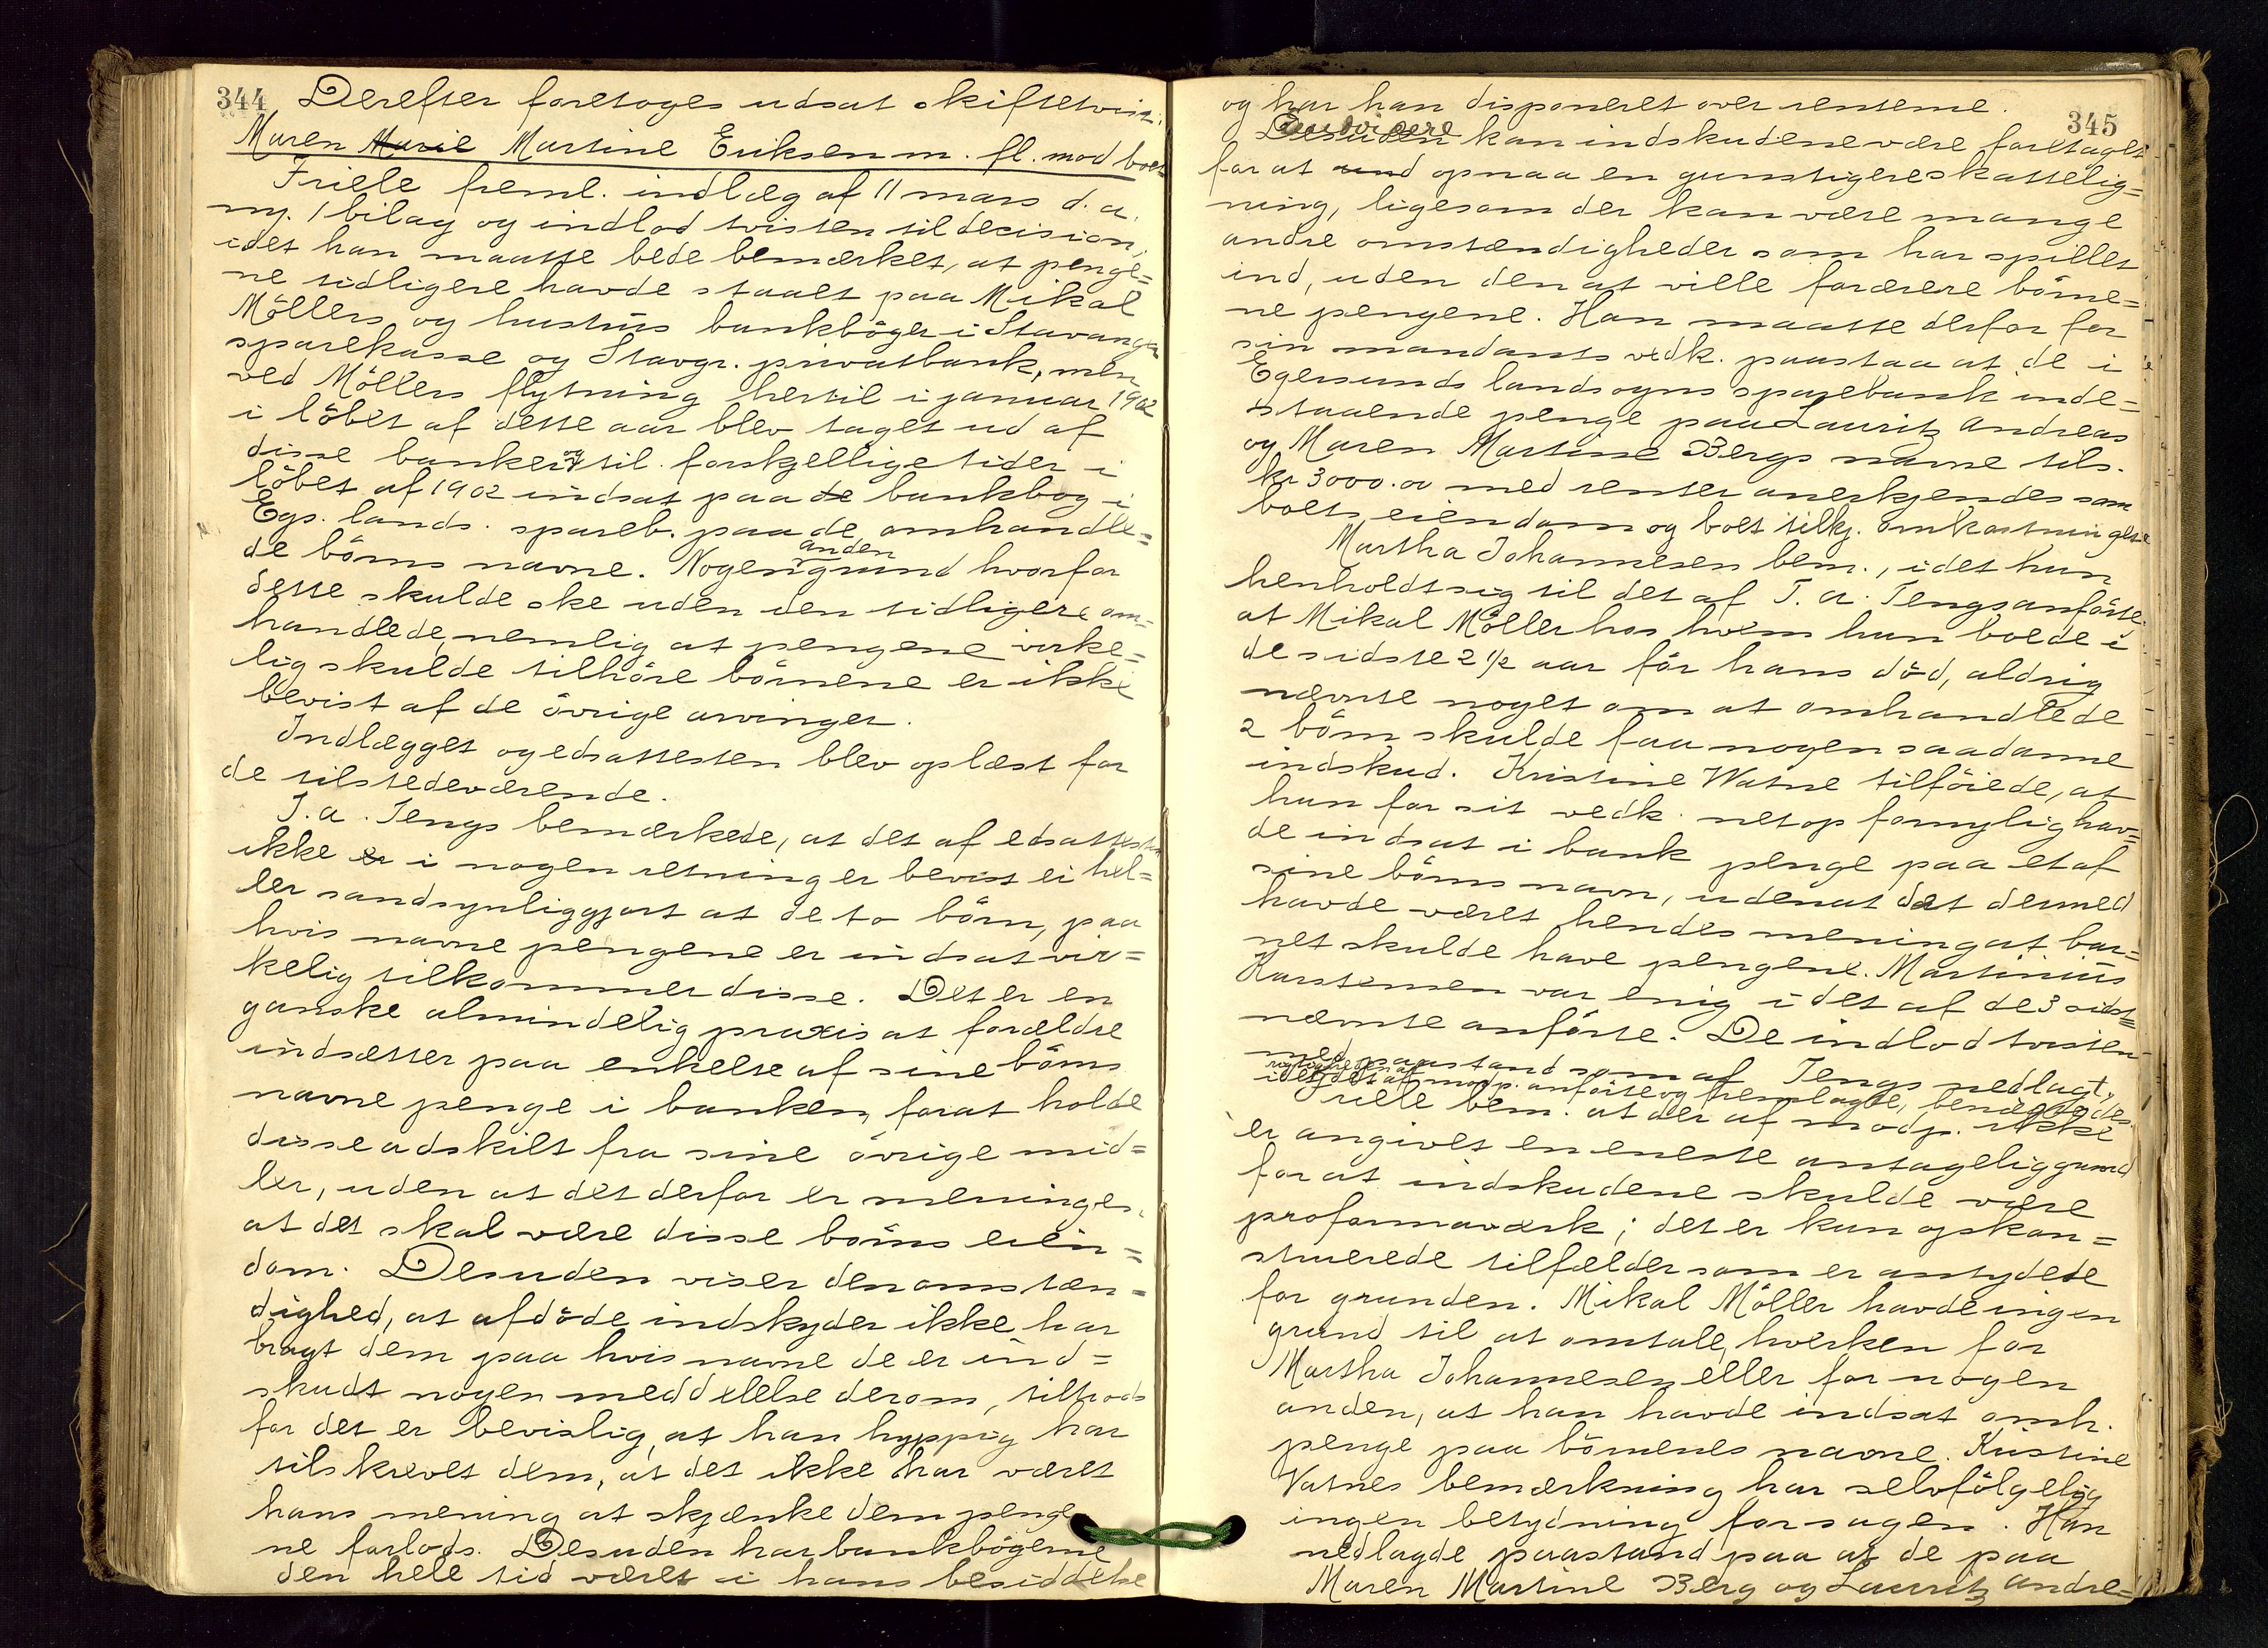 344
Derefter foretoges udsat skiftetvist:
Maren Marie Martine Eriksen m. fl. mod boet
Friele freml. indlæg af 11 mars d. a.
m. 1 bilag og indlod tvisten til decision,
idet han maatte bede bemærket, at penge=
ne tidligere havde staaet paa Mikal
Möllers og hustrus bankböger i Stavanger
sparekasse og Stavgr. privatbank, men
ved Möllers flytning hertil i januar 1902
i löbet af dette aar blev taget ud af
disse banker og til forskjellige tider i
löbet af 1902 indsat paa de bankbog i
Egs. lands. spareb. paa de omhandle=
de börns navne. Nogen anden grund hvorfor
dette skulde ske uden den tidligere om=
handlede, nemlig at pengene virke=
lig skulde tilhöre börnene er ikke
bevist af de övrige arvinger.
Indlægget og edsattesten blev oplæst for
de tilstedeværende.
T. A. Tengs bemærkede, at det af edsattesten
ikke er i nogen retning er bevist ei hel=
ler sandsynliggjort at de to börn, paa
hvis navne pengene er indsat vir=
kelig tilkommer disse. Det er en
ganske almindelig praxis at forældre
indsætter paa enkelte af sine börns
navne penge i banken, forat holde
disse adskilt fra sine övrige mid=
ler, uden at det derfor er meningen,
at det skal være disse börns eien=
dom. Desuden viser den omstæn=
dighed, at afdöde indskyder ikke har
bragt dem paa hvis navne de er ind=
skudt nogen meddelelse derom, tiltrods
for det er bevislig, at han hyppig har
tilskrevet dem, at det ikke har været
hans mening at skjænke dem penge
ne forlods. Desuden har bankbögerne
den hele tid været i hans besiddelse
345
og har han disponeret over renterne.
Endvidere kan indskudene være foretaget
for at und opnaa en gunstigere skattelig=
ning, ligesom der kan være mange
andre omstændigheder som har spillet
ind, uden den at ville forærere börne=
ne pengene. Han maatte derfor for
sin mandants vedk. paastaa at de i
Egersunds landsogns sparebank inde=
staaende penge paa Lauritz Andreas
og Maren Martine Bergs navne tils.
kr 3000.00 med renter anerkjendes som
boets eiendom og boet tilkj. omkostningerne
Martha Johannesen bem., idet hun
henholdt sig til det af T. A. Tengs anförte
at Mikal Möller hos hvem hun boede i
de sidste 2 1/2 aar för hans död, aldrig
nævnte noget om at omhandlede
2 börn skulde faa nogen saadanne
indskud. Kristine Watne tilföiede, at
hun for sit vedk. netop fornylig hav=
de indsat i bank penge paa et af
sine börns navn, uden at det dermed
havde været hendes mening at bar=
net skulde have pengene. Martinius
Karstensen var enig i det af de 3 sidst=
nævnte anförte. De indlod tvisten
med paastand som af Tengs nedlagt,
idet rigtigheden af det af modp. anförte og fremlagte, benægtedes.
Friele bem. at der af modp. ikke
er angivet en eneste antagelig grund
for at indskudene skulde være
proformaværk; det er kun opkon=
struerede tilfælder som er antydede
for grunden. Mikal Möller havde ingen
grund til at omtale, hverken for
Martha Johannesen eller for nogen
anden, at han havde indsat omh.
penge paa börnenes navne. Kristine
Vatnes bemærkning har selvfölgelig
ingen betydning for sagen. Han
nedlagde paastand paa at de paa
Maren Martine Berg og Lauritz Andre=